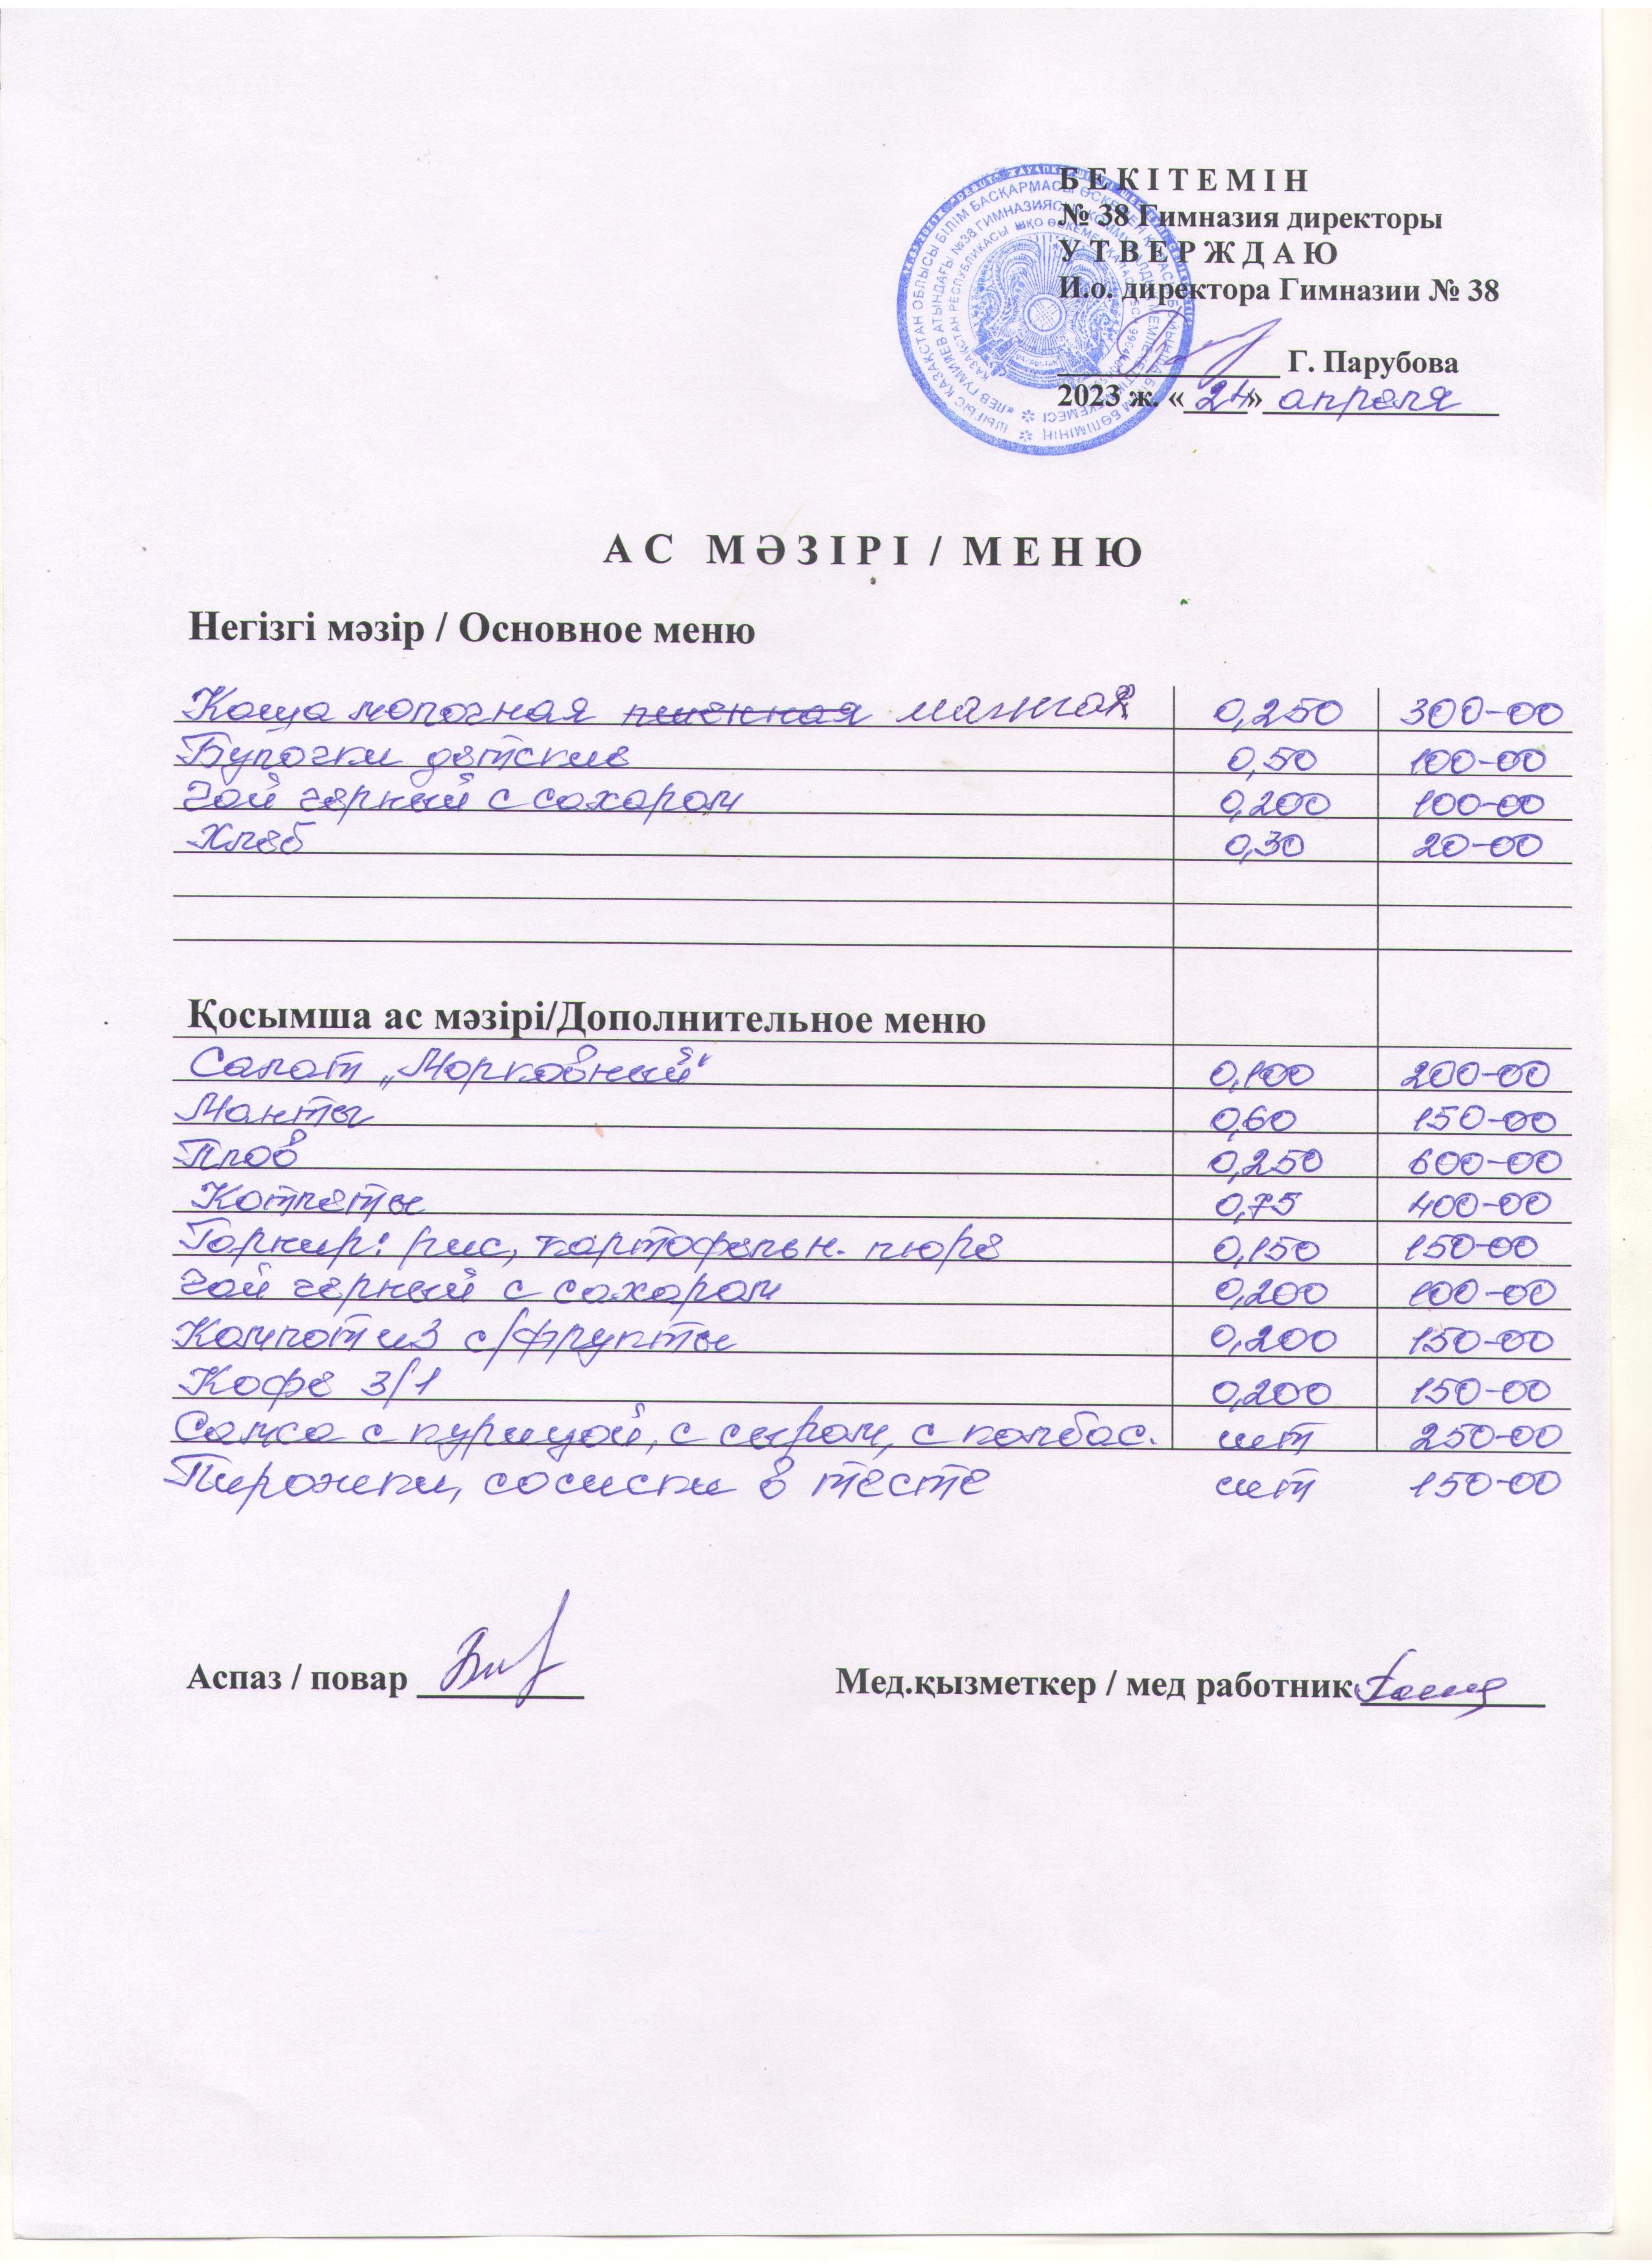 БЕКІТЕМІН
№ 38 Гимназия директоры
УТВЕРЖДАЮ
И.о. директора Гимназии № 38
Г. Парубова
2023 ж. «24» апреля
АС МӘЗІРІ / МЕНЮ
Негізгі мәзір / Основное меню
Каша молочная пшенная манная 0,250 300-00
Булочки детские 0,50 100-00
Чай черный с сахаром 0,200 100-00
Хлеб 0,30 20-00
Қосымша ас мәзірі/Дополнительное меню
Салат „Морковный" 0,100 200-00
Манты 0,60 150-00
Плов 0,250 600-00
Котлеты 0,75 400-00
Гарнир: рис, картофельн. пюре 0,150 150-00
Чай черный с сахаром 0,200 100-00
Компот из с/фрукты 0,200 150-00
Кофе 3/1 0,200 150-00
Самса с курицой, с сыром, с колбас. шт 250-00
Пирожки, сосиски в тесте шт 150-00
Аспаз / повар Мед.қызметкер / мед работник